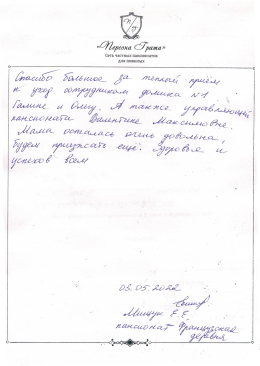 «Персона Грата»
Сеть частных пансионатов
для пожилых
Спасибо большое за теплый приём
и уход сотрудникам домика №1
Галине и Олегу. А также управляющей
пансионата Валентине Максимовне.
Мама осталась очень довольна,
будем приезжать ещё. Здоровья и
успехов всем
03.05.2022
Е.Е.
пансионат Французская
деревня